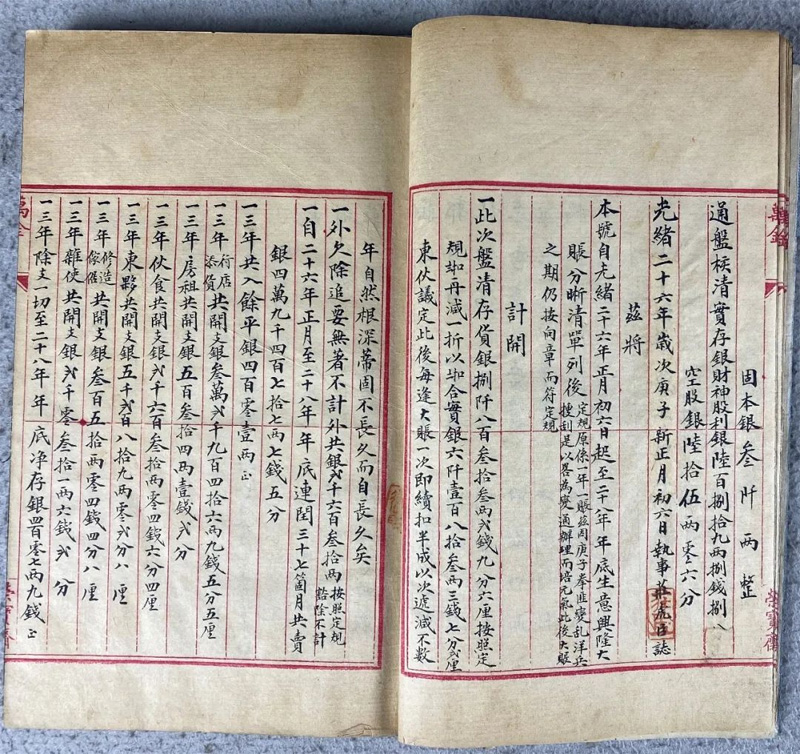 固本銀叁阡兩整
通盤核清實存銀財神股利銀陸百捌拾九兩捌錢捌八
空股銀陸拾伍兩零六分
光緒二十六年歲次庚子新正月初六日執事莊虎臣誌
茲將
本號自光緒二十六年正月初六日起至二十八年年底生意興隆大
賬分晰清單列後定規原係一年一賬茲因庚子拳匪變亂洋兵
擾刮是以畧為變通辦理而培元氣此後大賬
之期仍按向章而符定規
計開
一此次盤清存貨銀捌阡八百叁拾叁兩弍錢九分六厘按照定
規如再減一折以如合實銀六阡壹百八拾叁兩三錢七分弍厘
東伙議定此後每逢大賬一次即續扣半成以次遞減不數
年自然根深蒂固不長久而自長久矣
一外欠除追要無著不計外共銀弍千六百叁拾兩按照定規
諮除不計
一自二十六年正月至二十八年年底連閏三十七箇月共賣
銀四萬九千四百七拾七兩七錢五分
一三年共入餘平銀四百零壹兩正
一三年行店添貨共開支銀叁萬弍千九百四拾六兩九錢五分五厘
一三年房租共開支銀五百叁拾四兩壹錢弍分
一三年伙食共開支銀弍千六百叁拾兩零四錢六分四厘
一三年東夥共開支銀五千弍百八拾九兩零弍分八厘
一三年修造傢傕共開支銀叁百五拾兩零四錢四分八厘
一三年雜使共開支銀弍千零叁拾一兩六錢弍分
一三年除支一切至二十八年年底凈存銀四百零七兩九錢正
萬金
榮寶齋